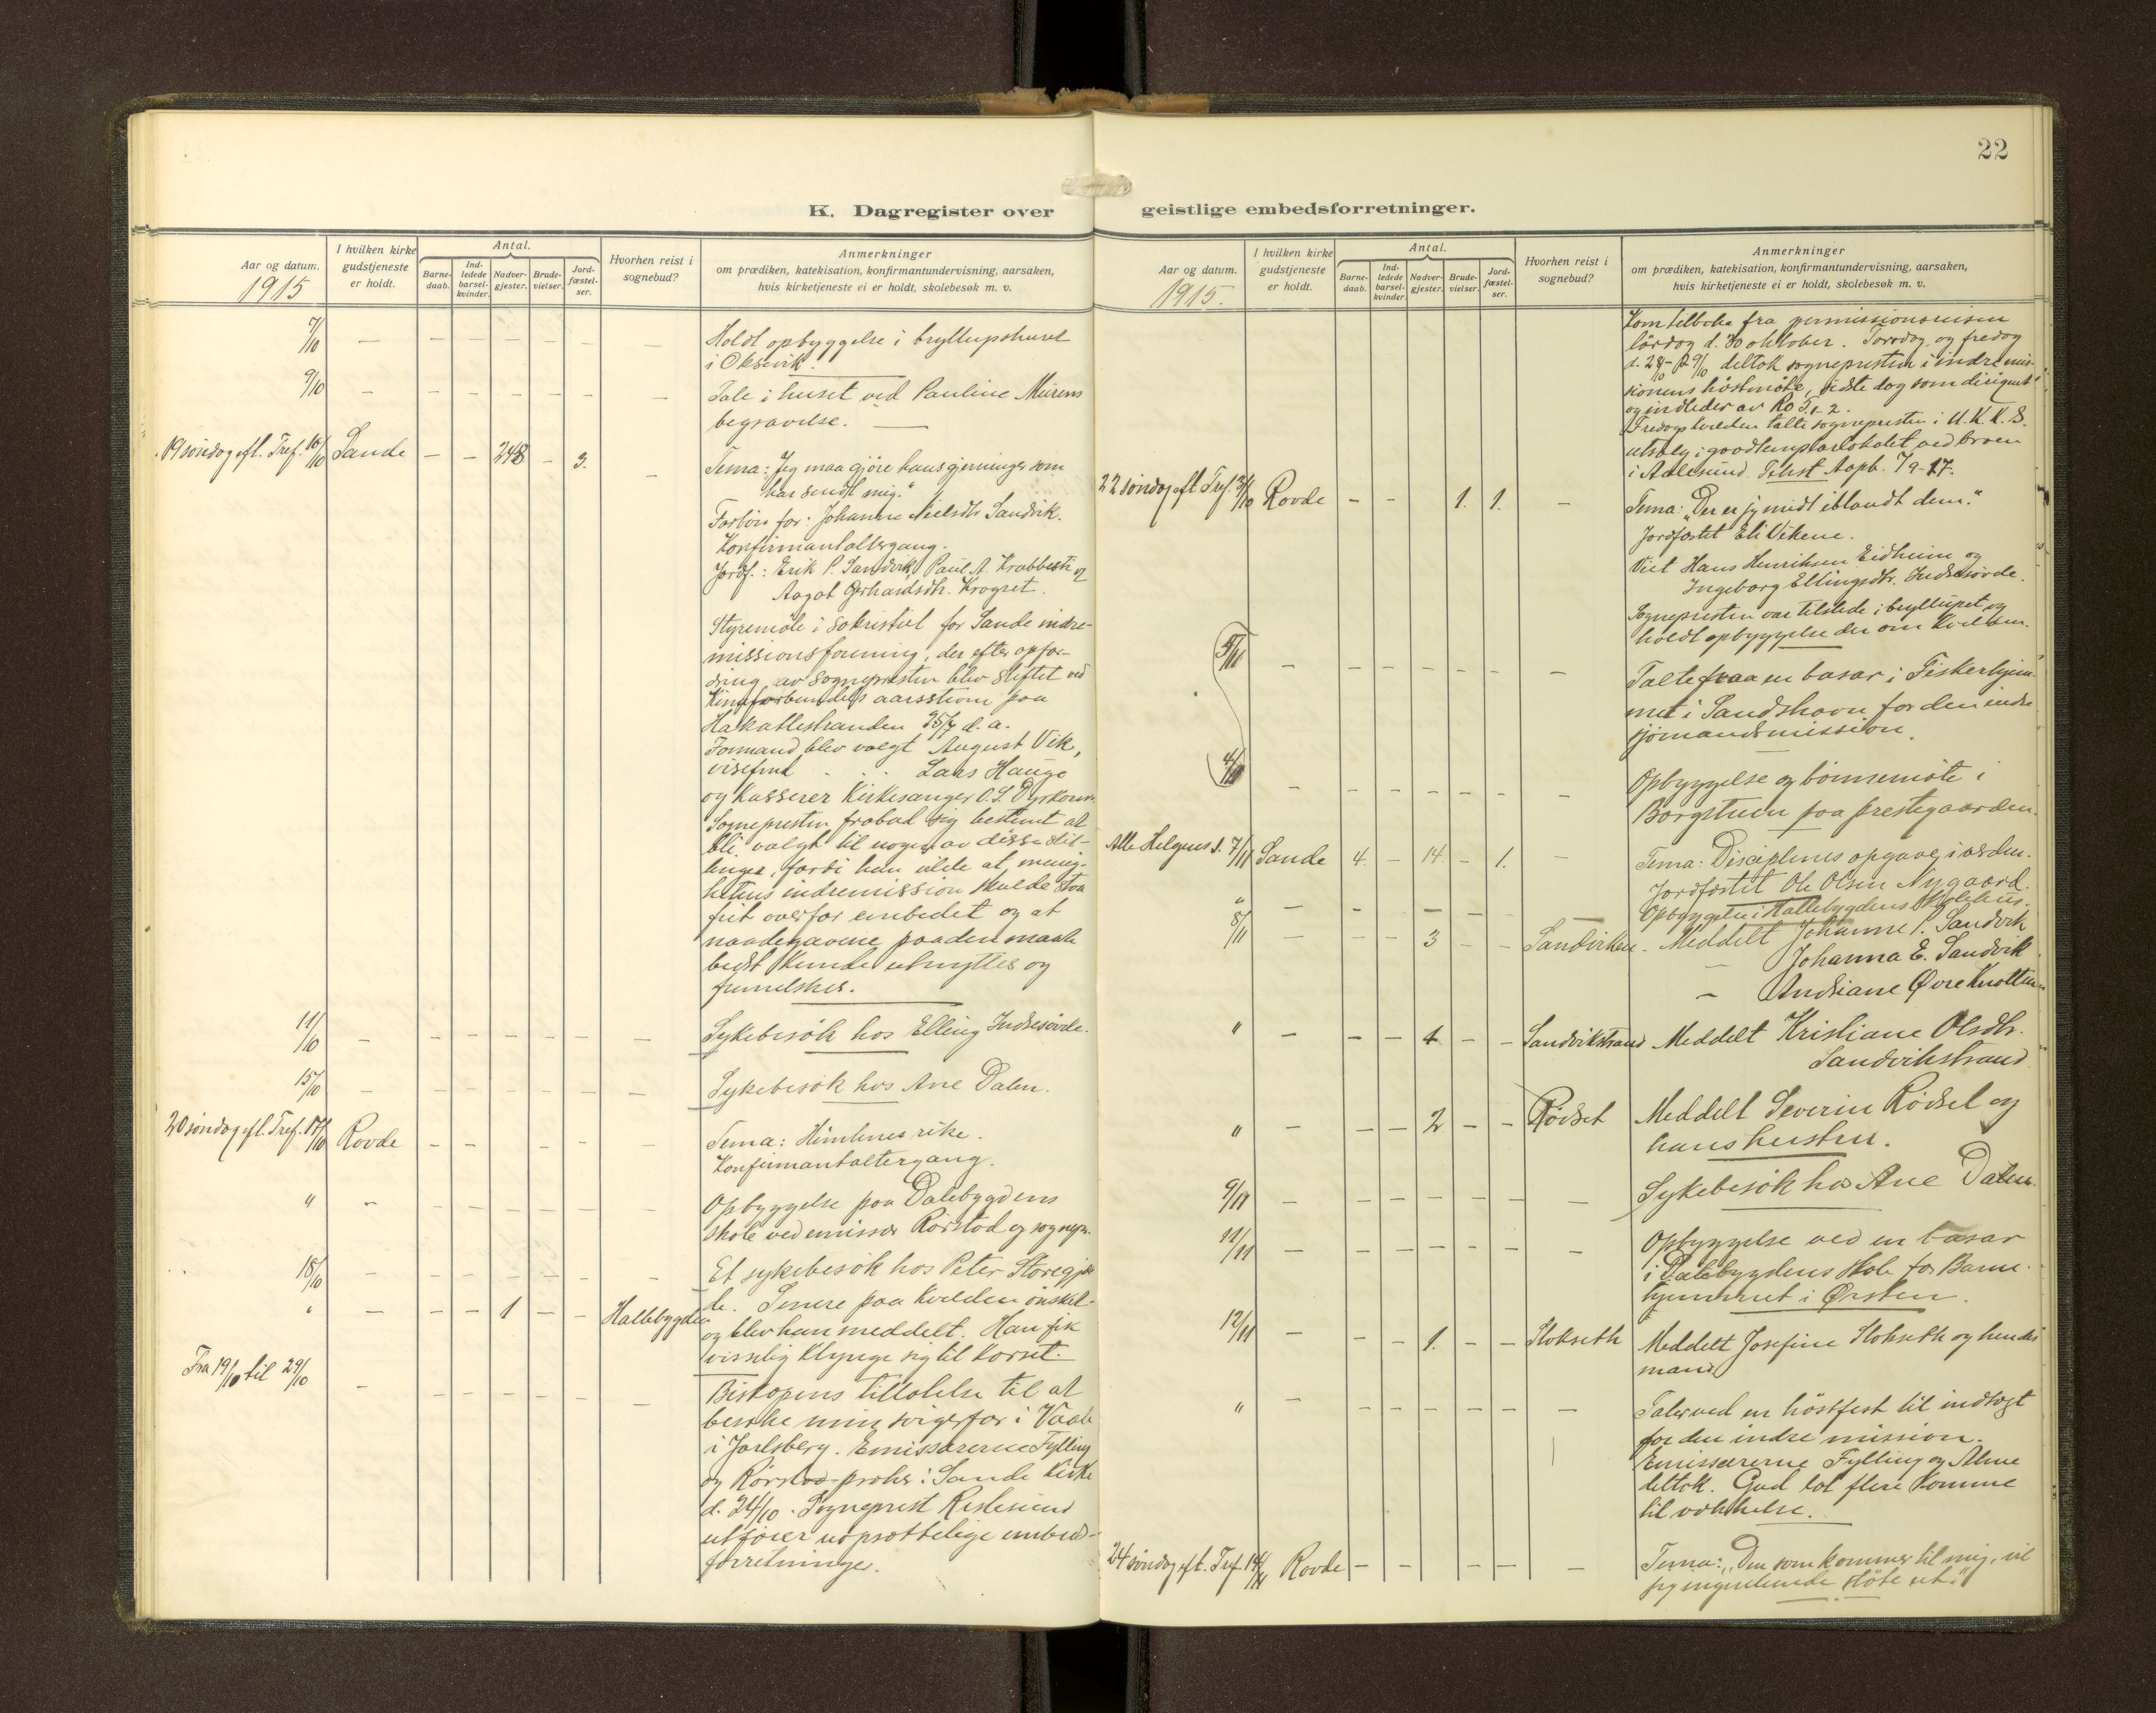 22
K. Dagregister over geistlige embedsforretninger.
Aar og datum.
1915
I hvilken kirke gudstjeneste er holdt.
Antal.
Barne-daab.
Ind-ledede barsel-kvinder.
Nadver-gjester.
Brude-vielser.
Jord-fæstel-ser.
Hvorhen reist i sognebud?
Anmerkninger
om prædiken, katekisation, konfirmantundervisning, aarsaken,
hvis kirketjeneste ei er holdt, skolebesøk m. v.
7/10 — — — — — — — Holdt opbyggelse i bryllupshuset
i Oksevik.
9/10 — — — — — — — Tale i huset ved Pauline Murens
begravelse.
19 søndag eft. Tref. 10/10 Sande — — 248 — 3. — Tema: Jeg maa gjøre hans gjerninger som
har sendt mig."
Forbøn for: Johanne Nielsdtr Sandvik.
Konfirmantaltergang.
Jordf.: Erik P. Sandvik, Paul A. Krabbesti og
Aagot Gerhardsdtr. Krogset.
Styremøte i sakristiet for Sande indre-
missionsforening, der efter opfor-
dring av sognepresten blev stiftet ved
Kinaforbundets aarsstevne paa
Hakallestranden 25/7 d. a.
Formand blev valgt August Vik,
visefmd . . . Lars Hauge
og kasserer Kirkesanger O. S. Dyrkorn.
Sognepresten frabad sig bestemt at
bli valgt til nogen av disse stil-
linger, fordi han vilde at menig-
hetens indremission skulde staa
frit overfor embedet og at
naadegavene paa den maate
bedst kunde utnyttes og
fremelskes.
11/10 — — — — — — — Sykebesøk hos Elling Indresøvde.
15/10 — — — — — — — Sykebesøk hos Ane Dalen.
20 søndag eft. Tref. 17/10 Rovde — — — — — Tema: Himlenes rike.
Konfirmantaltergang.
" — — — — — — — Opbyggelse paa Dalebygdens
skole ved emissær Rørstad og sognepr.
18/10 — — — — — — — Et sykebesøk hos Peter Storegjer-
" — — — 1 — — Hallebygden de. Senere paa kvelden ønsket
og blev han meddelt. Han fik
visselig klynge sig til korset.
Fra 19/10 til 29/10 — — — — — — — Biskopens tillatelse til at
besøke min svigerfar i Vaale
i Jarlsberg. Emissærerne Fylling
og Rørstad præker i Sande kirke
d. 24/10. Sogneprest Ristesund
utfører uopsættelige embeds-
forretninger.
Aar og datum.
1915.
I hvilken kirke gudstjeneste er holdt.
Antal.
Barne-daab.
Ind-ledede barsel-kvinder.
Nadver-gjester.
Brude-vielser.
Jord-fæstel-ser.
Hvorhen reist i sognebud?
Anmerkninger
om prædiken, katekisation, konfirmantundervisning, aarsaken,
hvis kirketjeneste ei er holdt, skolebesøk m. v.
Kom tilbake fra permissionsreisen
lørdag d. 30 oktober. Torsdag og fredag
d. 28/10-29/10 deltok sognepresten i indremis-
sionens høstmøte, sidste dag som dirigent
og indleder av Ro
Fredagskvelden talte sognepresten i U.K.K.S.
utsalg i goodtemplarlokalet ved broen
i Aalesund. Tekst Aapb. 7 9-17.
22 søndag eft. Tref. 31/10 Rovde — — 1. 1. — Tema: „Der er jeg midt iblandt dem."
Jordfæstet Eli Vikene.
Viet Hans Henriksen Eidheim og
Ingeborg Ellingsdtr. Indresøvde.
Sognepresten var tilstede i bryllupet og
holdt opbyggelse der om kvelden.
5/11 — — — — — — — Talte paa en basar i Fiskerhjem-
met i Sandshavn for den indre
sjømandsmission.
4/11 — — — — — — — Opbyggelse og bønnemøte i
Borgstuen paa prestegaarden.
Alle Helgens s. 7/11 Sande 4. — 14. — 1. — Tema: Disciplenes opgave i verden.
Jordfæstet Ole Olsen Nygaard.
" — — — — — Opbyggelse i Hallebygdens skolehus.
8/11 — — — 3 — — Sandviken. Meddelt Johanne P. Sandvik
— Johanna E. Sandvik
— Andriane Øvre Knotten
" — — — 4 — — Sandvikstrand Meddelt Kristiane Olsdtr.
Sandvikstrand
" — — — 2 — — Rødset Meddelt Severin Rødset og
hans hustru.
9/11 — — — — — — — Sykebesøk hos Ane Dalen.
11/11 — — — — — — — Opbyggelse ved en basar
i Dalebygdens skole for Barne-
hjemmet i Ørsten.
12/11 — — — 1. — — Stokseth Meddelt Josefine Stokseth og hendes
mand
" — — — — — — — Taler ved en høstfest til indtægt
for den indre mission.
Emissærerne Fylling og Alme
deltok. Gud lot flere komme
til vækkelse.
24 søndag eft. Tref. 14/11 Rovde — — — — — Tema: „Den som kommer til mig, vil
jeg ingenlunde støte ut."